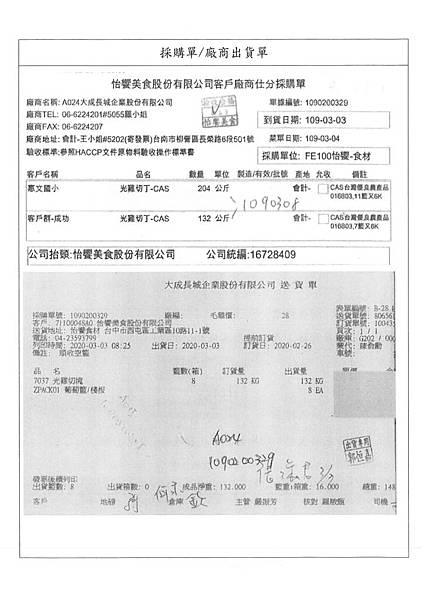 採購單/廠商出貨單
怡饗美食股份有限公司客戶廠商仕分採購單
廠商名稱: A024大成長城企業股份有限公司 單據編號: 1090200329
廠商TEL: 06-6224201#5055羅小姐 到貨日期: 109-03-03
廠商FAX: 06-6224207 菜單日期: 109-03-04
廠商地址: 會計-王小姐#5202(寄發票)台南市柳營區長榮路6段501號
驗收標準:參照HACCP文件原物料驗收操作標準書 採購單位: FE100怡饗-食材
客戶名稱 品名 數量 單位 製造/有效/批號 產地 允收 備註
惠文國小 光雞切丁-CAS 204 公斤 會計- CAS台灣優良農產品
016803,11藍又6K
1090308
客戶群-成功 光雞切丁-CAS 132 公斤 會計- CAS台灣優良農產品
016803,7藍又6K
公司抬頭:怡饗美食股份有限公司 公司統編:16728409
大成長城企業股份有限公司 送 貨 單
採購單號: 1090200329 廠編: 毛雞價: 28
客戶: 怡饗美食股份有限公司
送貨地址: 怡饗食材 台中市西屯區工業區10路11-1號 頁次: 1 / 1
電話: 04-23593799 提前訂貨
列印時間: 2020-03-03 08:25 出貨日: 2020-03-03 訂貨日: 2020-02-26
備註: 車號:
品 名 籃數(箱) 訂貨量 出貨量
7037 光雞切塊 8 132 KG 132 KG
ZPACK01 葡萄籃/棧板 8 EA
A024
1090200329
出貨籃數: 8 出貨箱數: 0 成品淨重: 132.000 籃重+箱重: 16.000 總重: 148
客戶 地磅 倉庫 主管 核對 司機